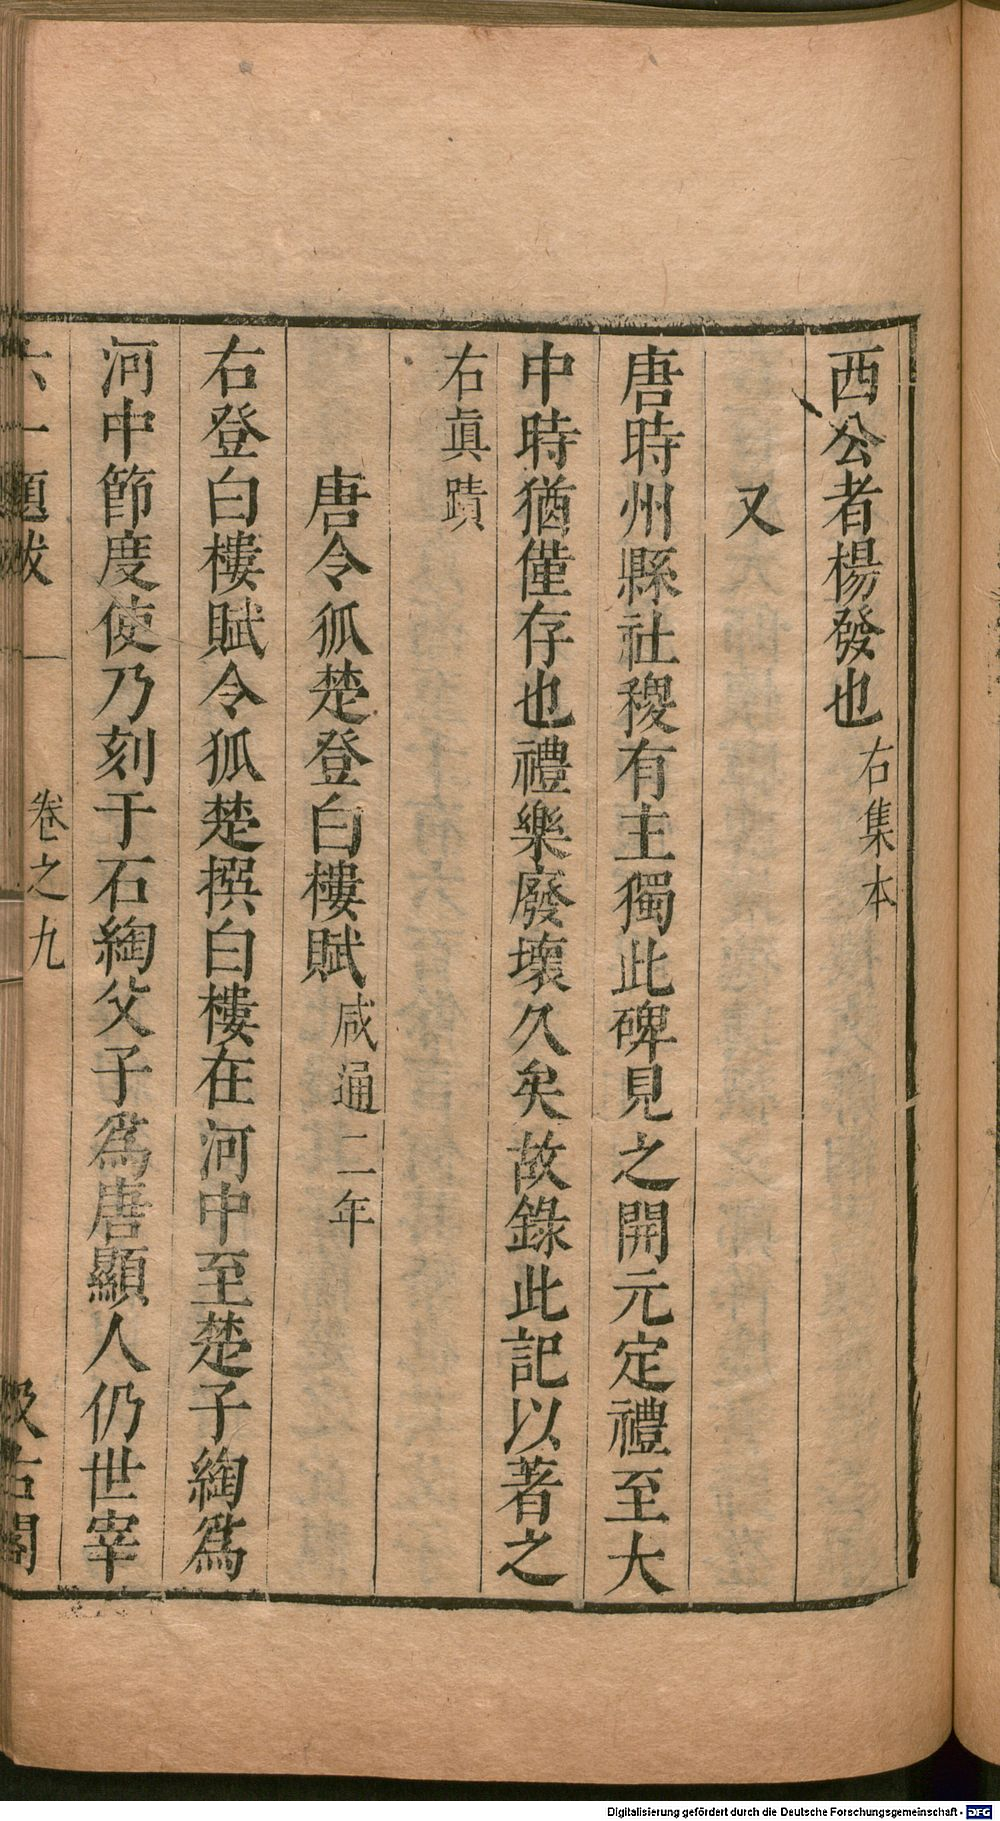 西公者楊發也右集本
又
唐時州縣社稷有主獨此碑見之開元定禮至大
中時猶僅存也禮樂廢壞久矣故錄此記以著之
右眞蹟
唐令狐楚登白樓賦咸通二年
右登白樓賦令狐楚撰白樓在河中至楚子綯爲
河中節度使乃刻于石綯父子爲唐顯人仍世宰
六一題跋 卷之九 汲古閣
Digitalisierung gefördert durch die Deutsche Forschungsgemeinschaft - DFG